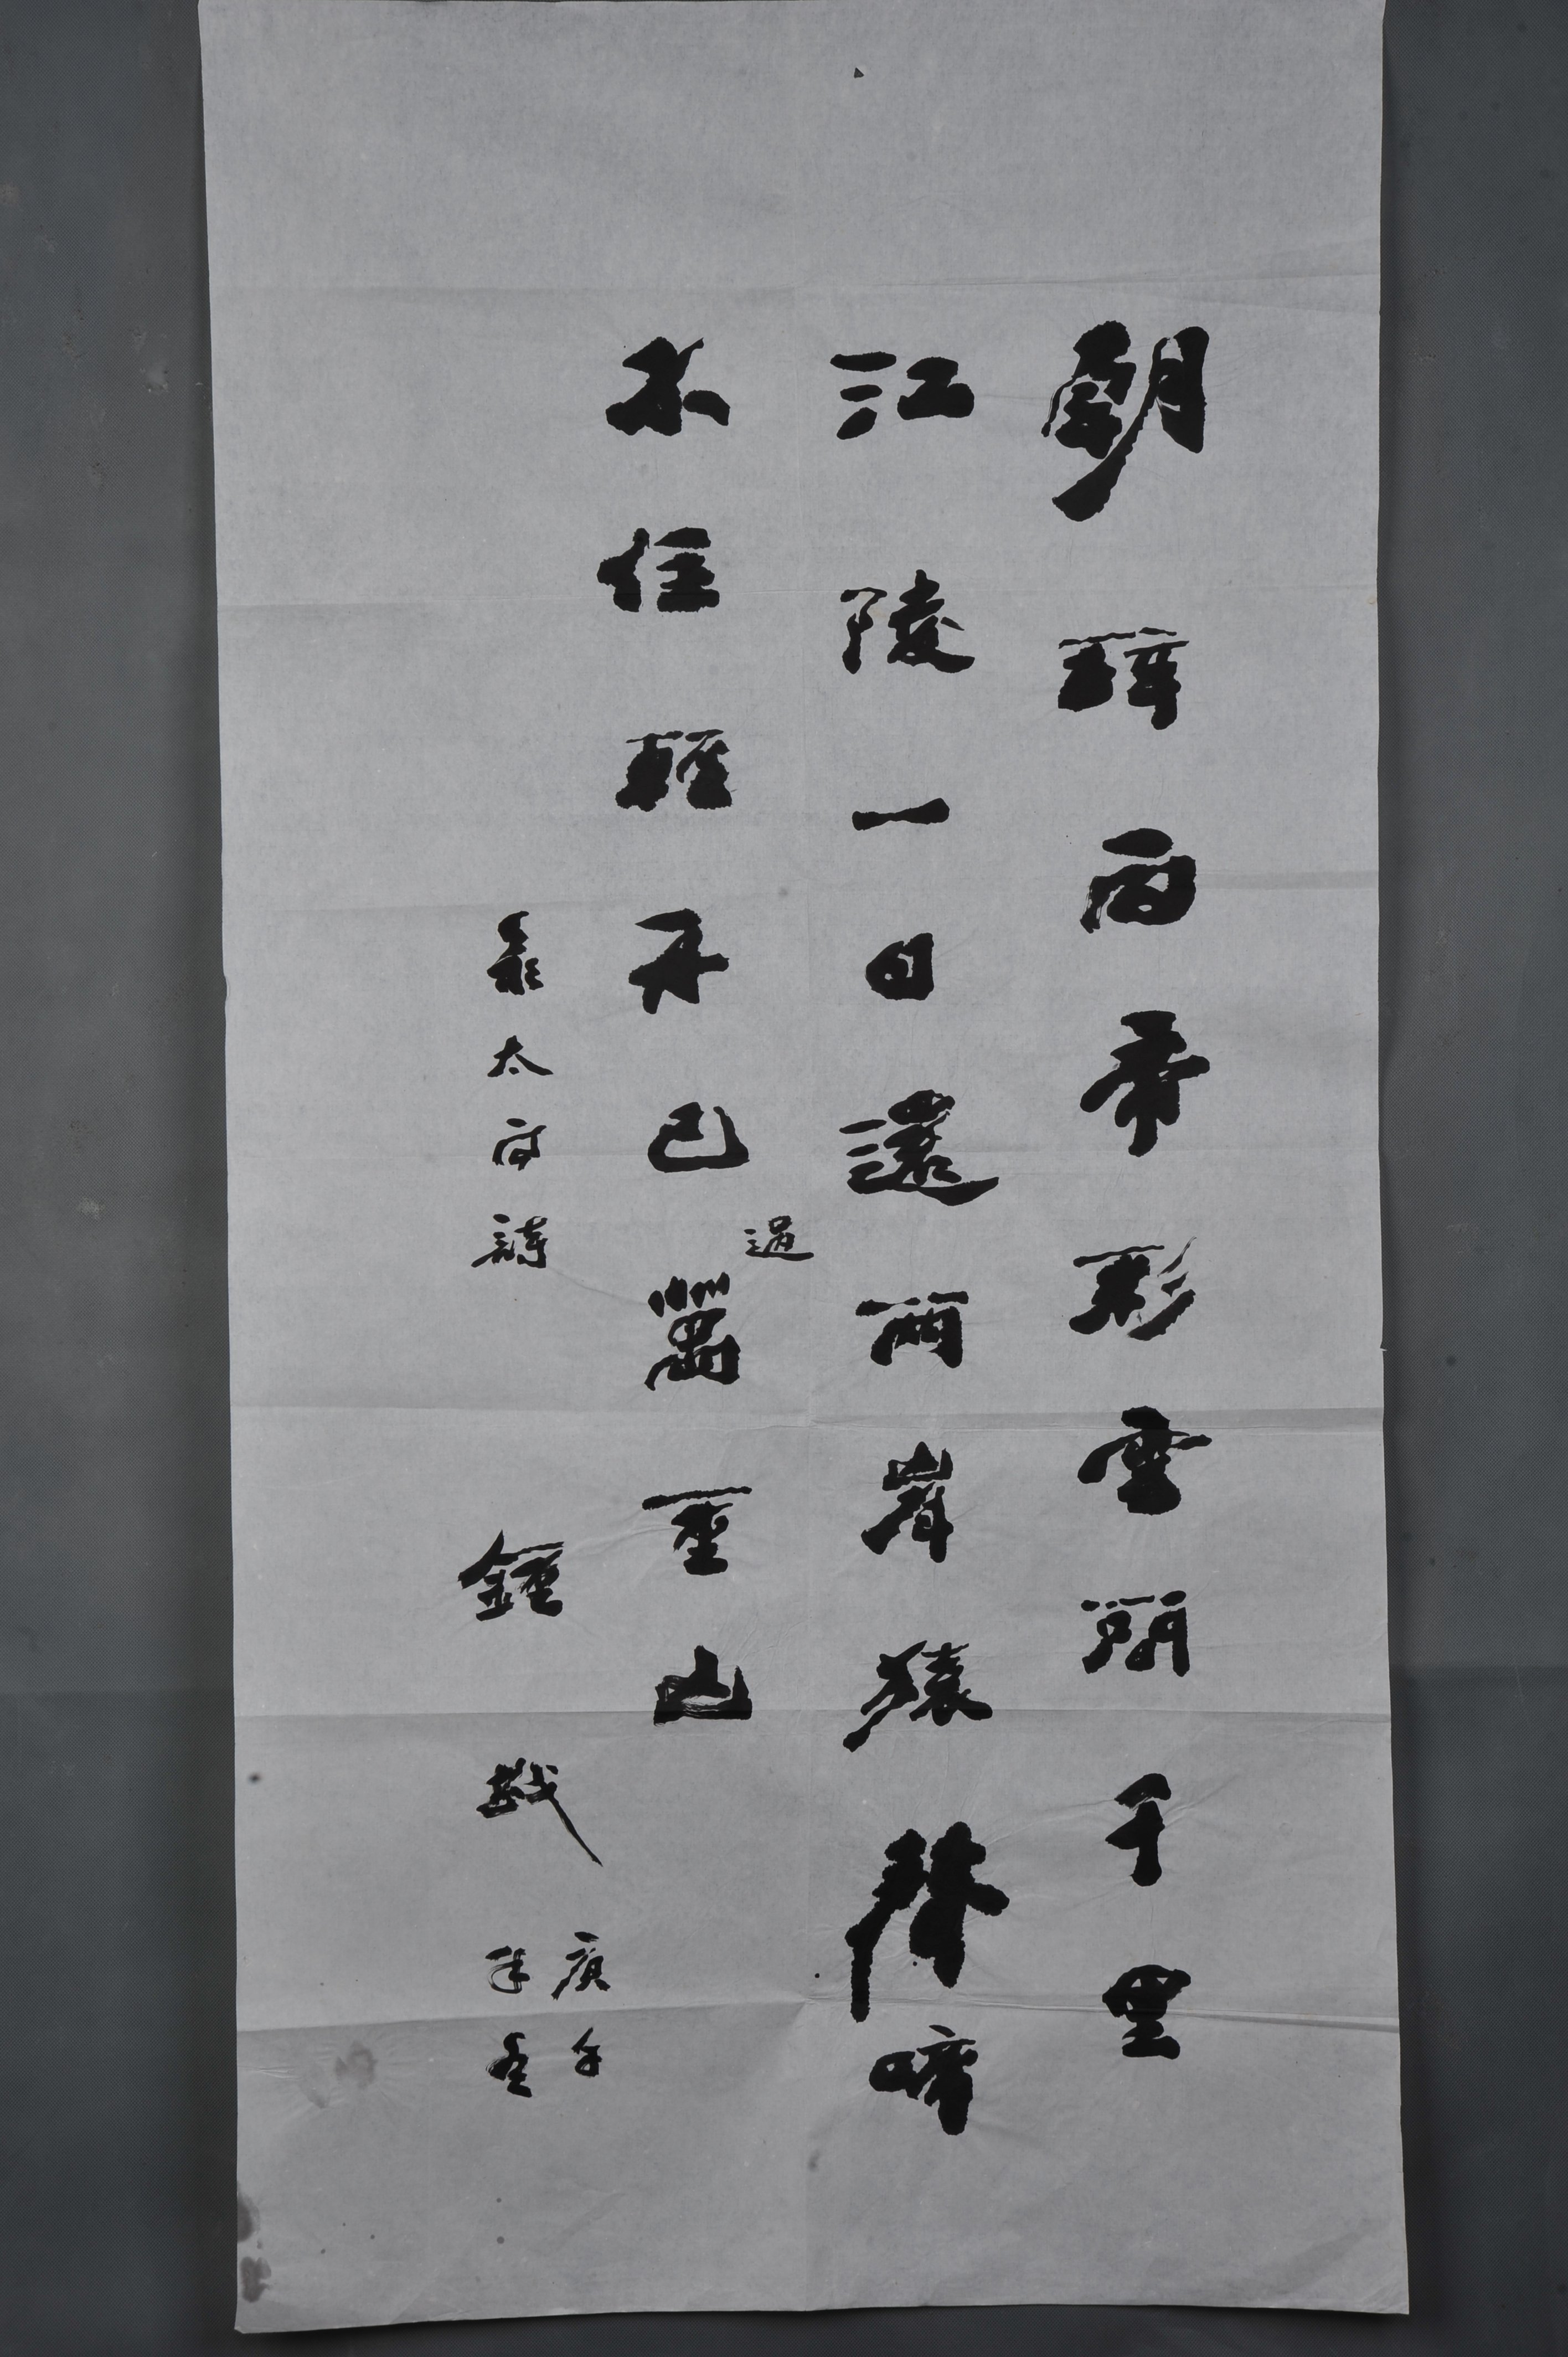 朝辭白帝彩雲間千里
江陵一日還兩岸猿聲啼
不住輕舟已過萬重山
太白詩 鍾
庚午
年